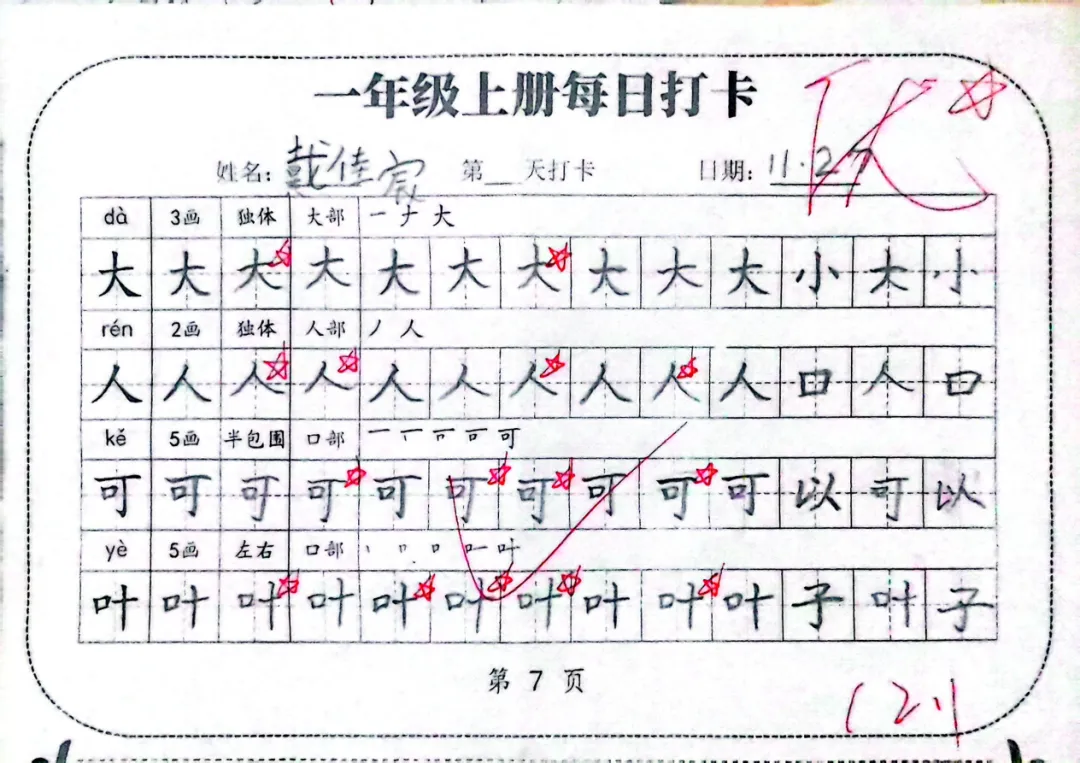 一年级上册每日打卡
姓名：戴佳宸 第__天打卡 日期：11.27
dà 3画 独体 大部 一 ナ 大
大 大 大 大 大 大 大 大 大 大 小 大 小
rén 2画 独体 人部 丿 人
人 人 人 人 人 人 人 人 人 人 日 人 日
kě 5画 半包围 口部 一 丅 可
可 可 可 可 可 可 可 可 可 可 以 可 以
yè 5画 左右 口部 丨 口 叶
叶 叶 叶 叶 叶 叶 叶 叶 叶 叶 子 叶 子
第 7 页
12.1